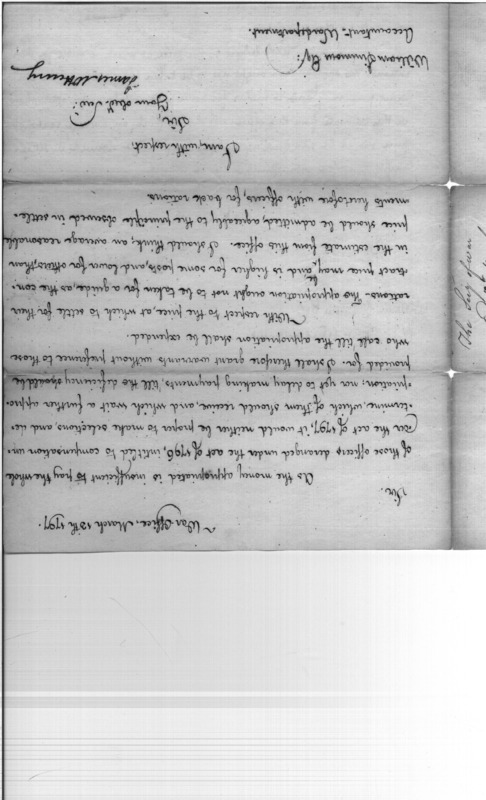 War Office, March 13th 1797.
Sir,
As the money appropriated is insufficient to pay the whole
of those officers deranged under the act of 1796, intitled to compensation un-
der the act of 1797, it would neither be proper to make selections, and de-
termine, which of them should receive, and which wait a further appro-
priation; nor yet to delay making payments, till the deficiency should be
provided for. I shall therefore grant warrants without preference to those
who call till the appropriation shall be expended.
With respect to the price, at which to settle their
rations. The appropriation ought not to be taken for a guide, as the con-
tract price may, and is higher for some posts, and lower for others than
in the estimate from this office. I should think, an average reasonable
price should be admitted, agreeably to the principle observed in settle-
ments heretofore with officers, for back rations
I am, with respect,
Sir,
Your obedt. Servt.
James McHenry
William Simmons Esqr.
Accountant - War department.
The Secy of war